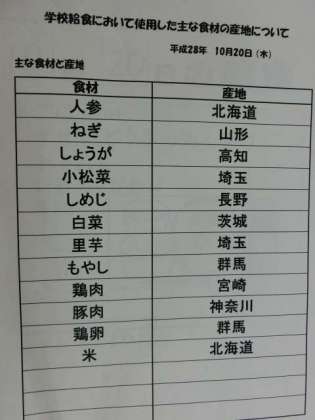 学校給食において使用した主な食材の産地について
平成28年 10月20日(木)
主な食材と産地
食材 産地
人参 北海道
ねぎ 山形
しょうが 高知
小松菜 埼玉
しめじ 長野
白菜 茨城
里芋 埼玉
もやし 群馬
鶏肉 宮崎
豚肉 神奈川
鶏卵 群馬
米 北海道